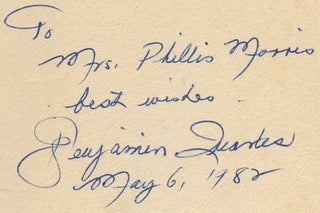 To
Mrs. Phillis Morris
best wishes
Benjamin Quarles
May 6, 1982